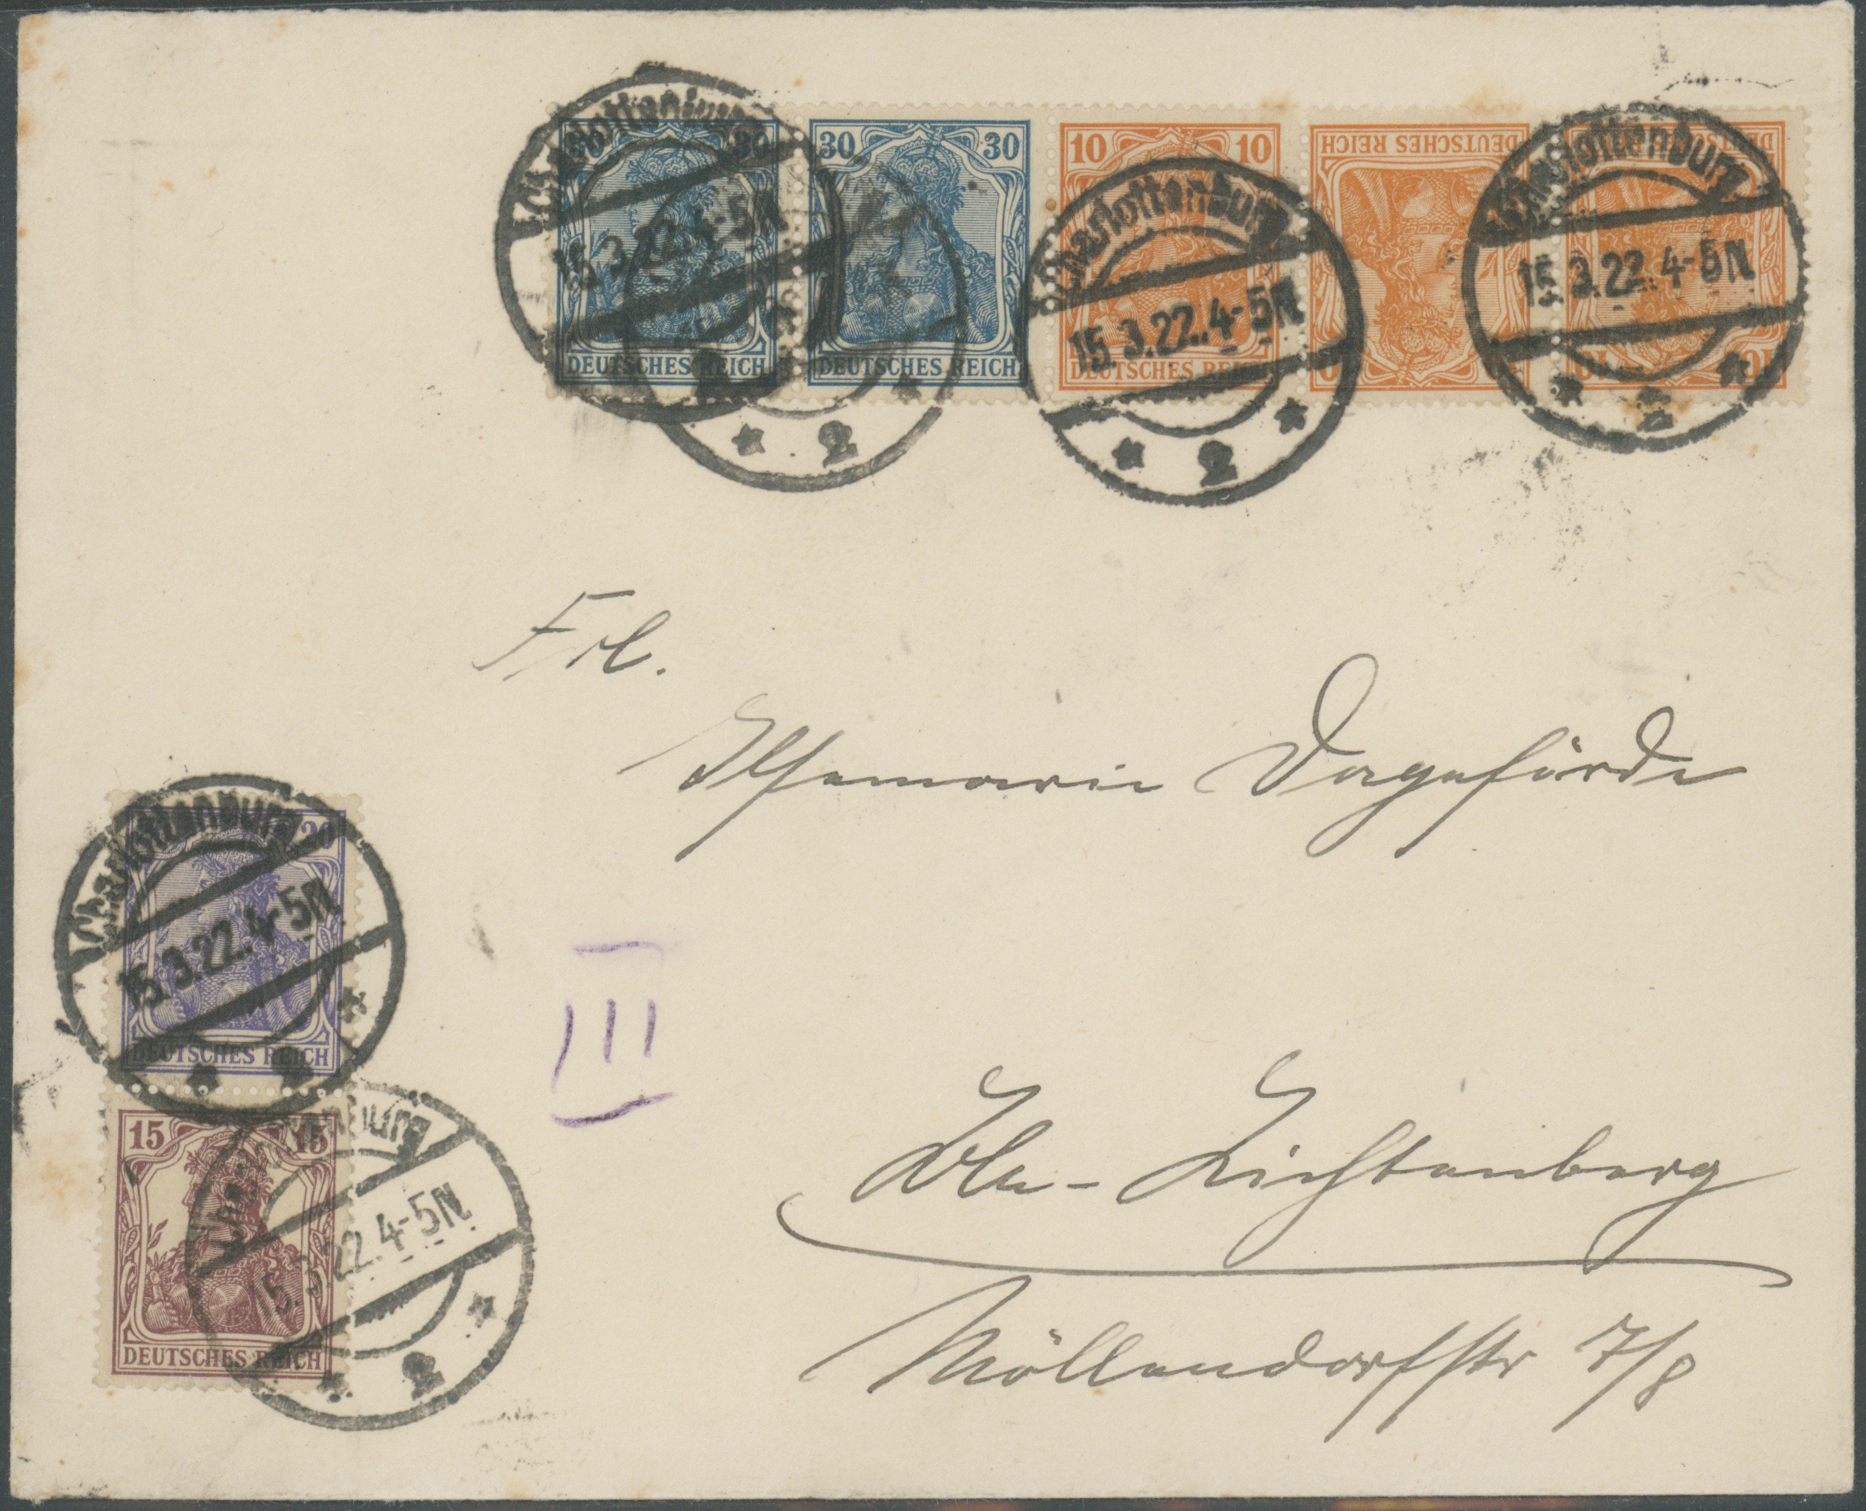 30 30
DEUTSCHES REICH
30 30
DEUTSCHES REICH
10 10
DEUTSCHES REICH
DEUTSCHES REICH
10
DEUTSCHES REICH
10 10
Charlottenburg
15.3.22.4-5N.
* 2 *
* 2 *
Charlottenburg
15.3.22.4-5N.
* 2 *
Charlottenburg
15.3.22.4-5N.
* 2 *
Frl.
Ilsemarie Dageförde
20
DEUTSCHES REICH
Charlottenburg
15.3.22.4-5N.
* 2 *
III
15 15
DEUTSCHES REICH
Charlottenburg
15.3.22.4-5N.
* 2 *
Bln-Lichtenberg
Möllendorfstr 7/8